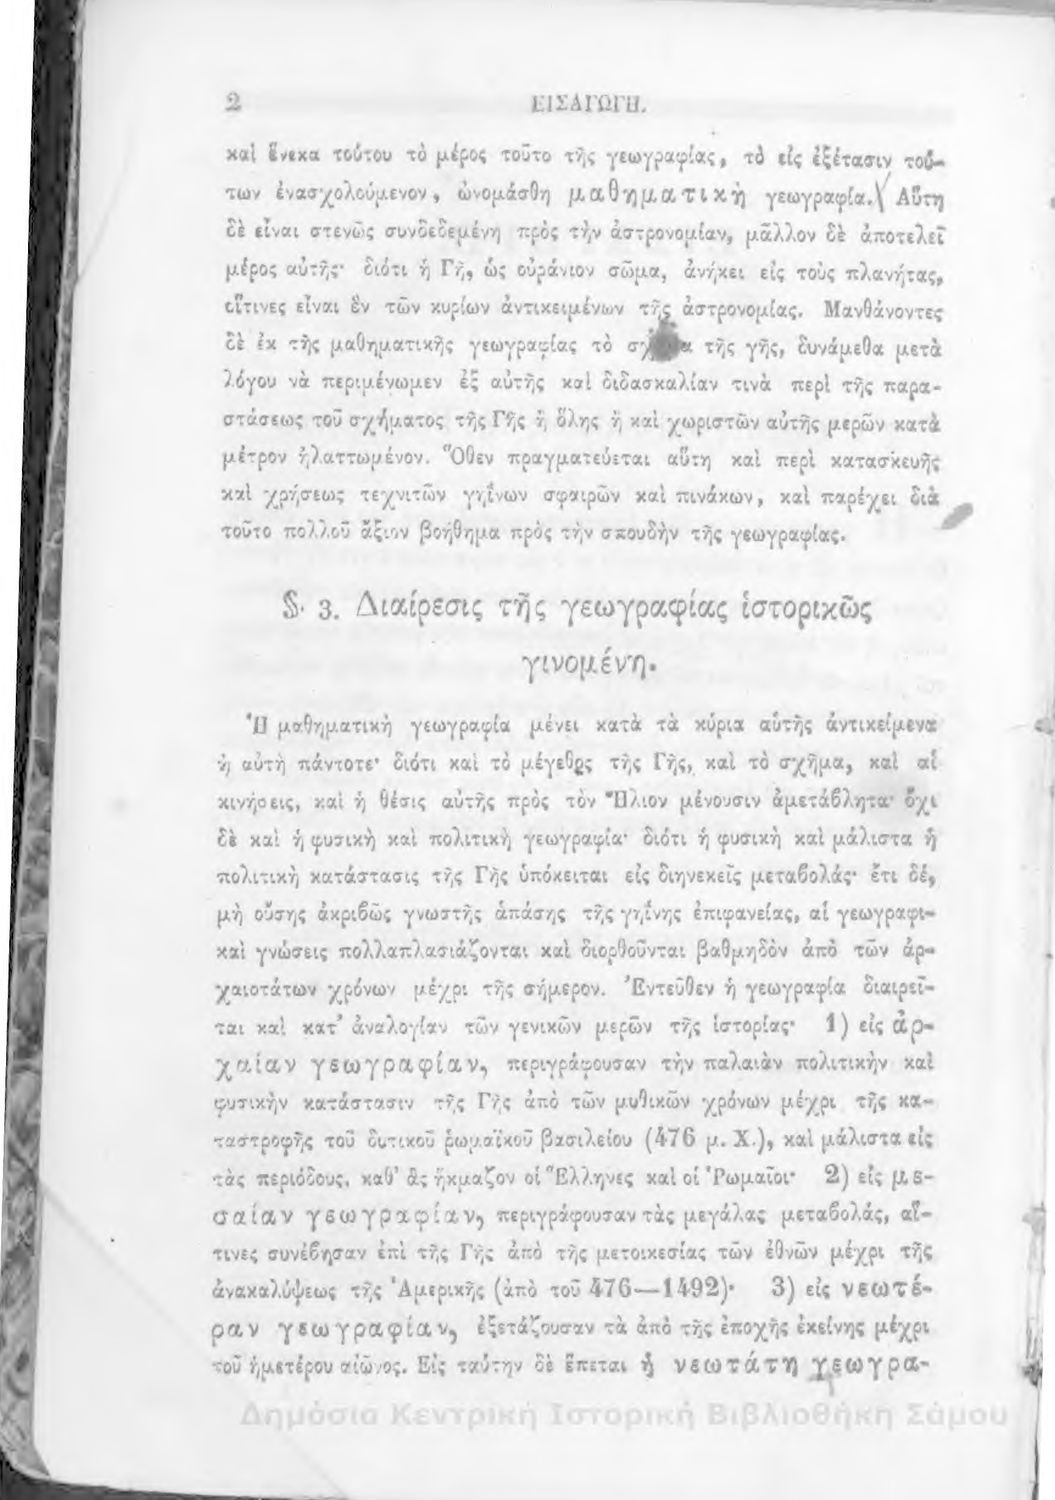 2 ΕΙΣΑΓΩΓΗ.
καὶ ἕνεκα τούτου τὸ μέρος τοῦτο τῆς γεωγραφίας, τὸ εἰς ἐξέτασιν τού-
των ἐνασχολούμενον, ὠνομάσθη μαθηματικὴ γεωγραφία. Αὕτη
δὲ εἶναι στενῶς συνδεδεμένη πρὸς τὴν ἀστρονομίαν, μᾶλλον δὲ ἀποτελεῖ
μέρος αὐτῆς· διότι ἡ Γῆ, ὡς οὐράνιον σῶμα, ἀνήκει εἰς τοὺς πλανήτας,
οἵτινες εἶναι ἓν τῶν κυρίων ἀντικειμένων τῆς ἀστρονομίας. Μανθάνοντες
δὲ ἐκ τῆς μαθηματικῆς γεωγραφίας τὸ τῆς γῆς, δυνάμεθα μετὰ
λόγου νὰ περιμένωμεν ἐξ αὐτῆς καὶ διδασκαλίαν τινὰ περὶ τῆς παρα-
στάσεως τοῦ σχήματος τῆς Γῆς ἢ ὅλης ἢ καὶ χωριστῶν αὐτῆς μερῶν κατὰ
μέτρον ἠλαττωμένον. Ὅθεν πραγματεύεται αὕτη καὶ περὶ κατασκευῆς
καὶ χρήσεως τεχνιτῶν γηΐνων σφαιρῶν καὶ πινάκων, καὶ παρέχει διὰ
τοῦτο πολλοῦ ἄξιον βοήθημα πρὸς τὴν σπουδὴν τῆς γεωγραφίας.
§· 3. Διαίρεσις τῆς γεωγραφίας ἱστορικῶς
γινομένη.
Ἡ μαθηματικὴ γεωγραφία μένει κατὰ τὰ κύρια αὑτῆς ἀντικείμενα
ἡ αὐτὴ πάντοτε· διότι καὶ τὸ μέγεθος τῆς Γῆς, καὶ τὸ σχῆμα, καὶ αἱ
κινήσεις, καὶ ἡ θέσις αὐτῆς πρὸς τὸν Ἥλιον μένουσιν ἀμετάβλητα· ὄχι
δὲ καὶ ἡ φυσικὴ καὶ πολιτικὴ γεωγραφία· διότι ἡ φυσικὴ καὶ μάλιστα ἡ
πολιτικὴ κατάστασις τῆς Γῆς ὑπόκειται εἰς διηνεκεῖς μεταβολάς· ἔτι δέ,
μὴ οὔσης ἀκριβῶς γνωστῆς ἁπάσης τῆς γηΐνης ἐπιφανείας, αἱ γεωγραφι-
καὶ γνώσεις πολλαπλασιάζονται καὶ διορθοῦνται βαθμηδὸν ἀπὸ τῶν ἀρ-
χαιοτάτων χρόνων μέχρι τῆς σήμερον. Ἐντεῦθεν ἡ γεωγραφία διαιρεῖ-
ται καὶ κατ’ ἀναλογίαν τῶν γενικῶν μερῶν τῆς ἱστορίας· 1) εἰς ἀρ-
χαίαν γεωγραφίαν, περιγράφουσαν τὴν παλαιὰν πολιτικὴν καὶ
φυσικὴν κατάστασιν τῆς Γῆς ἀπὸ τῶν μυθικῶν χρόνων μέχρι τῆς κα-
ταστροφῆς τοῦ δυτικοῦ ῥωμαϊκοῦ βασιλείου (476 μ. Χ.), καὶ μάλιστα εἰς
τὰς περιόδους, καθ’ ἃς ἤκμαζον οἱ Ἕλληνες καὶ οἱ Ῥωμαῖοι· 2) εἰς με-
σαίαν γεωγραφίαν, περιγράφουσαν τὰς μεγάλας μεταβολάς, αἵ-
τινες συνέβησαν ἐπὶ τῆς Γῆς ἀπὸ τῆς μετοικεσίας τῶν ἐθνῶν μέχρι τῆς
ἀνακαλύψεως τῆς Ἀμερικῆς (ἀπὸ τοῦ 476—1492)· 3) εἰς νεωτέ-
ραν γεωγραφίαν, ἐξετάζουσαν τὰ ἀπὸ τῆς ἐποχῆς ἐκείνης μέχρι
τοῦ ἡμετέρου αἰῶνος. Εἰς ταύτην δὲ ἕπεται ἡ νεωτάτη γεωγρα-
Δημόσια Κεντρική Ιστορική Βιβλιοθήκη Σάμου